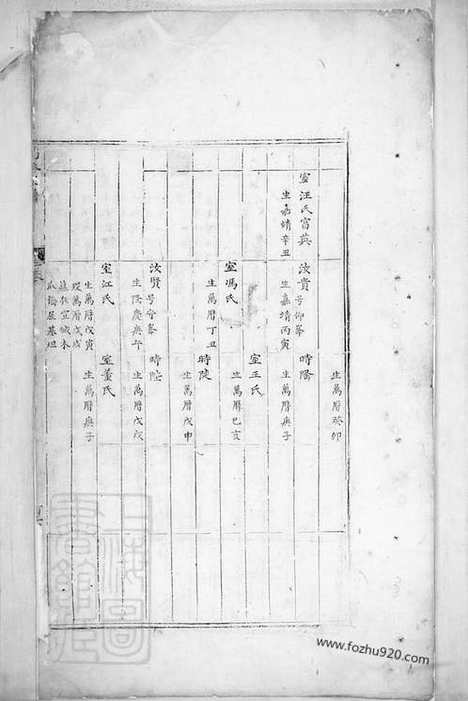 生萬曆癸卯
室汪氏富英
汝貴號仰峯
時隆
生嘉靖辛丑
生嘉靖丙寅
生萬曆庚子
室王氏
室馮氏
生萬曆己亥
生萬曆丁丑
時陡
生萬曆戊申
汝賢號守峯
時陞
生隆慶庚午
生萬曆戊戌
室江氏
室董氏
生萬曆戊寅
生萬曆庚子
歿萬曆戊戌
葬休宣城木
瓜
屋基坦
www.fozhu920.com